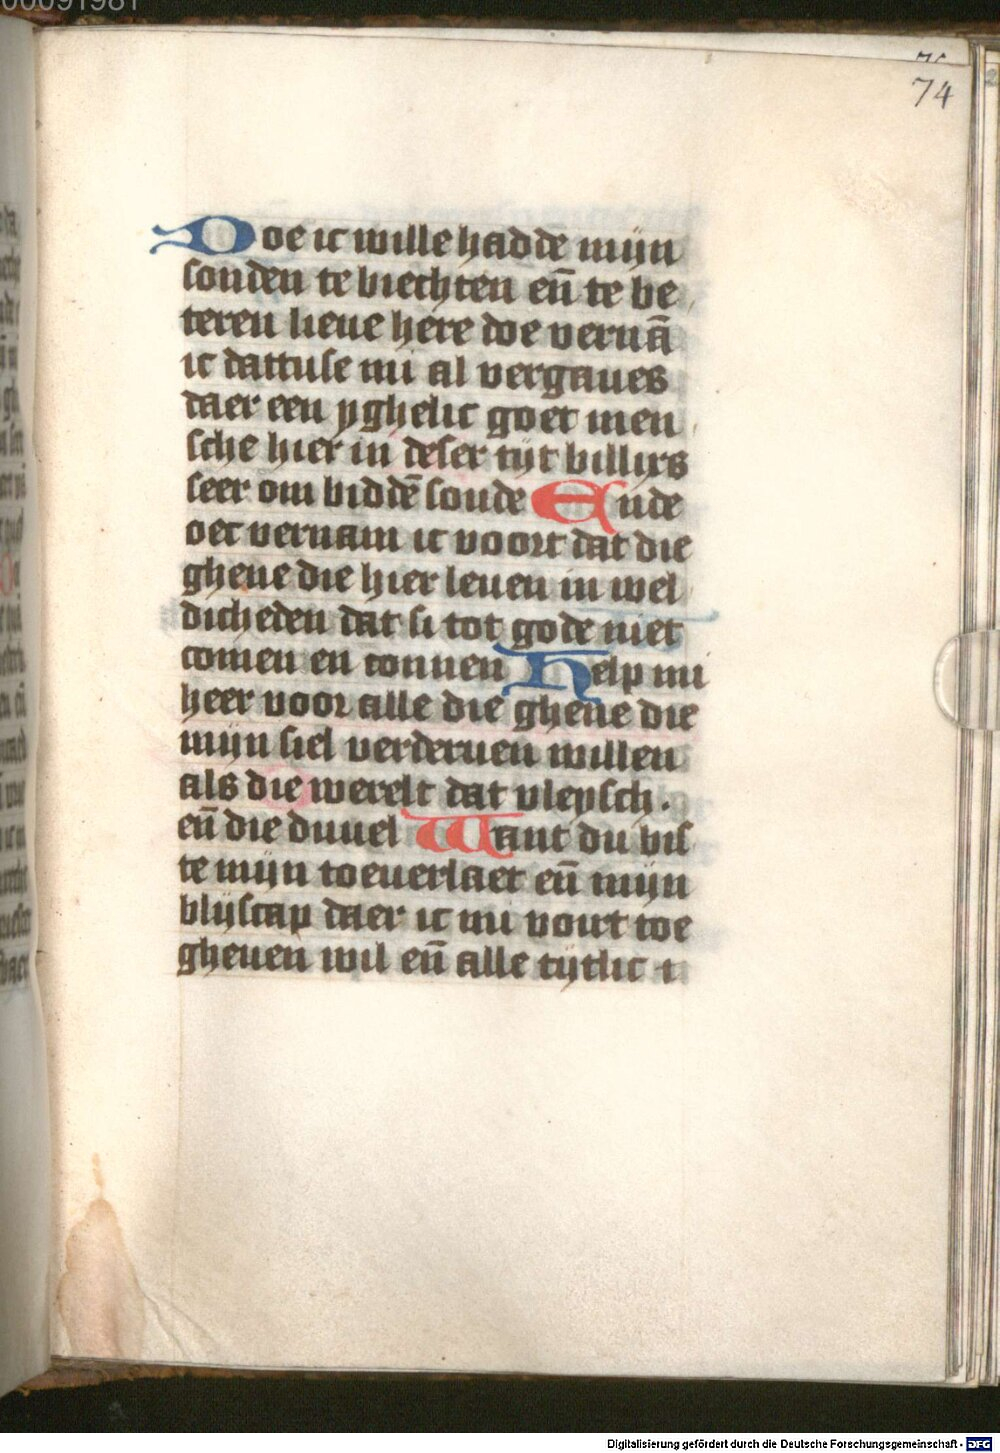 00091981
75
74
Doe ic wille hadde mijn
sonden te biechten eñ te be
teren lieue here doe vernā
ic dattuse mi al vergaues
daer een yghelic goet men
sche hier in deser tijt billixs
seer om biddē soude Ende
oec vernam ic voort dat die
ghene die hier leuen in wel
dicheden dat si tot gode niet
comen en connen Help mi
heer voor alle die ghene die
mijn siel verderuen willen
als die werelt dat vleysch.
eñ die duuel Want du bis
te mijn toeuerlaet eñ mijn
blijscap daer ic mi vout toe
gheuen wil eñ alle tijtlic
Digitalisierung gefördert durch die Deutsche Forschungsgemeinschaft - DFG